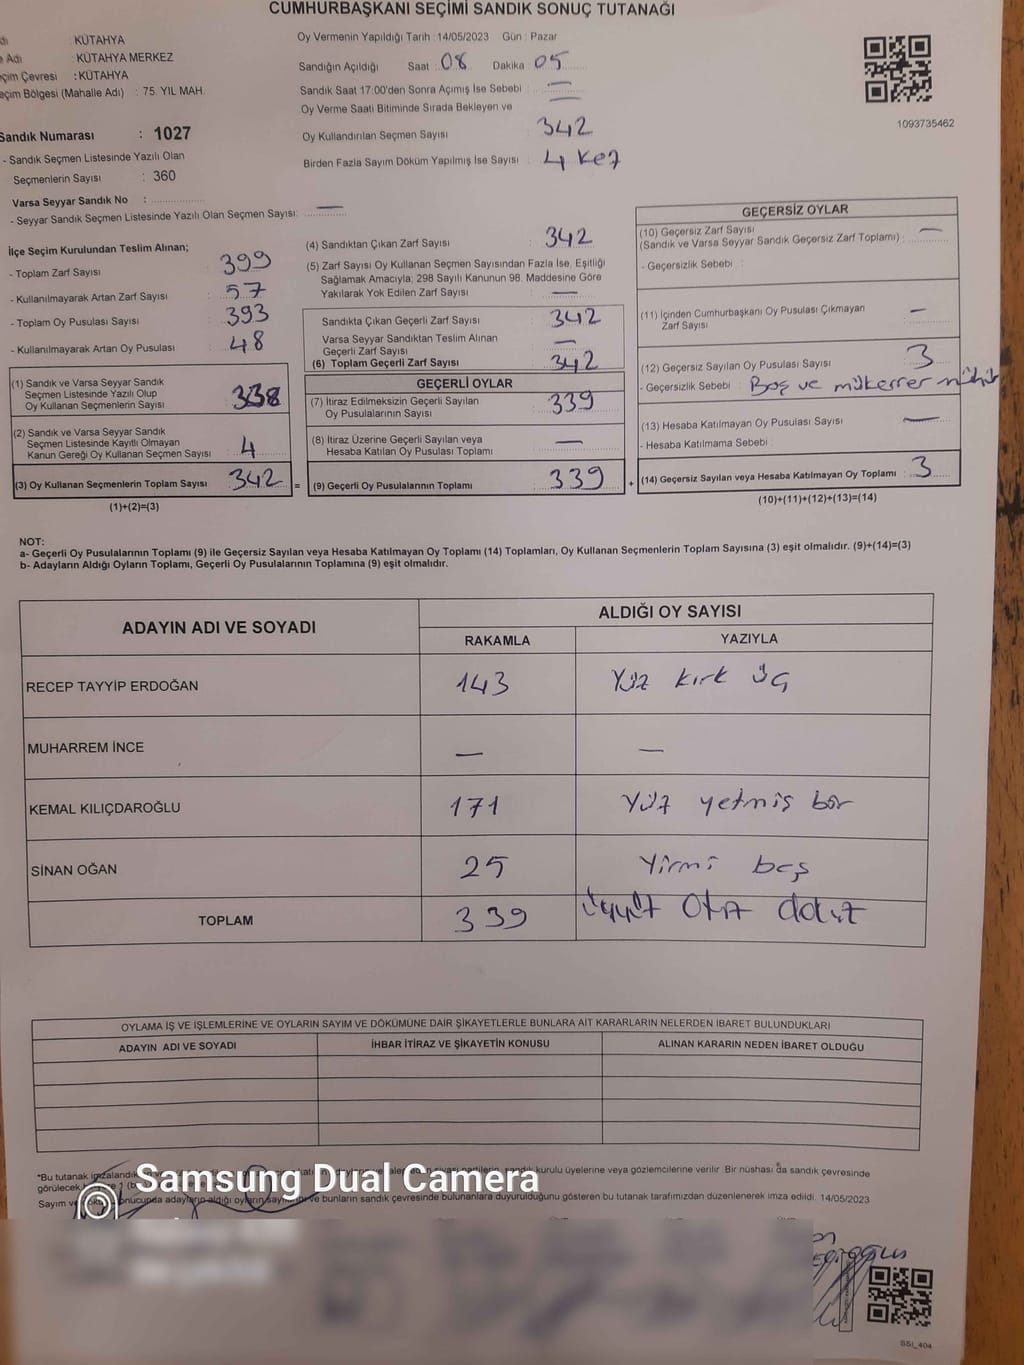 CUMHURBAŞKANI SEÇİMİ SANDIK SONUÇ TUTANAĞI
: KÜTAHYA
Adı : KÜTAHYA MERKEZ
Çevresi : KÜTAHYA
Bölgesi (Mahalle Adı) : 75. YIL MAH.
Sandık Numarası : 1027
- Sandık Seçmen Listesinde Yazılı Olan
Seçmenlerin Sayısı : 360
Varsa Seyyar Sandık No :
- Seyyar Sandık Seçmen Listesinde Yazılı Olan Seçmen Sayısı: —
Oy Vermenin Yapıldığı Tarih : 14/05/2023 Gün : Pazar
Sandığın Açıldığı Saat : 08 Dakika : 05
Sandık Saat 17:00'den Sonra Açımış İse Sebebi : —
Oy Verme Saati Bitiminde Sırada Bekleyen ve —
Oy Kullandırılan Seçmen Sayısı : 342
Birden Fazla Sayım Döküm Yapılmış İse Sayısı : 4 kez
1093735462
İlçe Seçim Kurulundan Teslim Alınan;
- Toplam Zarf Sayısı : 399
- Kullanılmayarak Artan Zarf Sayısı : 57
- Toplam Oy Pusulası Sayısı : 393
- Kullanılmayarak Artan Oy Pusulası : 48
(1) Sandık ve Varsa Seyyar Sandık
Seçmen Listesinde Yazılı Olup
Oy Kullanan Seçmenlerin Sayısı : 338
(2) Sandık ve Varsa Seyyar Sandık
Seçmen Listesinde Kayıtlı Olmayan
Kanun Gereği Oy Kullanan Seçmen Sayısı : 4
(3) Oy Kullanan Seçmenlerin Toplam Sayısı : 342 =
(1)+(2)=(3)
(4) Sandıktan Çıkan Zarf Sayısı : 342
(5) Zarf Sayısı Oy Kullanan Seçmen Sayısından Fazla İse, Eşitliği
Sağlamak Amacıyla; 298 Sayılı Kanunun 98. Maddesine Göre
Yakılarak Yok Edilen Zarf Sayısı : —
Sandıkta Çıkan Geçerli Zarf Sayısı : 342
Varsa Seyyar Sandıktan Teslim Alınan
Geçerli Zarf Sayısı : —
(6) Toplam Geçerli Zarf Sayısı : 342
GEÇERLİ OYLAR
(7) İtiraz Edilmeksizin Geçerli Sayılan
Oy Pusulalarının Sayısı : 339
(8) İtiraz Üzerine Geçerli Sayılan veya
Hesaba Katılan Oy Pusulası Toplamı : —
(9) Geçerli Oy Pusulalarının Toplamı : 339 +
GEÇERSİZ OYLAR
(10) Geçersiz Zarf Sayısı —
(Sandık ve Varsa Seyyar Sandık Geçersiz Zarf Toplamı) :
- Geçersizlik Sebebi :
(11) İçinden Cumhurbaşkanı Oy Pusulası Çıkmayan —
Zarf Sayısı
(12) Geçersiz Sayılan Oy Pusulası Sayısı : 3
- Geçersizlik Sebebi : Boş ve mükerrer mühür
(13) Hesaba Katılmayan Oy Pusulası Sayısı : —
- Hesaba Katılmama Sebebi :
(14) Geçersiz Sayılan veya Hesaba Katılmayan Oy Toplamı : 3
(10)+(11)+(12)+(13)=(14)
NOT:
a- Geçerli Oy Pusulalarının Toplamı (9) ile Geçersiz Sayılan veya Hesaba Katılmayan Oy Toplamı (14) Toplamları, Oy Kullanan Seçmenlerin Toplam Sayısına (3) eşit olmalıdır. (9)+(14)=(3)
b- Adayların Aldığı Oyların Toplamı, Geçerli Oy Pusulalarının Toplamına (9) eşit olmalıdır.
ADAYIN ADI VE SOYADI ALDIĞI OY SAYISI
RAKAMLA YAZIYLA
RECEP TAYYİP ERDOĞAN 143 Yüz kırk üç
MUHARREM İNCE — —
KEMAL KILIÇDAROĞLU 171 Yüz yetmiş bir
SİNAN OĞAN 25 Yirmi beş
TOPLAM 339 üçyüz otuz dokuz
OYLAMA İŞ VE İŞLEMLERİNE VE OYLARIN SAYIM VE DÖKÜMÜNE DAİR ŞİKAYETLERLE BUNLARA AİT KARARLARIN NELERDEN İBARET BULUNDUKLARI
ADAYIN ADI VE SOYADI İHBAR İTİRAZ VE ŞİKAYETİN KONUSU ALINAN KARARIN NEDEN İBARET OLDUĞU
*Bu tutanak kurulu üyelerine veya gözlemcilerine verilir. Bir nüshası da sandık çevresinde
görülecek
Sayım ve ve bunların sandık çevresinde bulunanlara duyurulduğunu gösteren bu tutanak tarafımızdan düzenlenerek imza edildi. 14/05/2023
Samsung Dual Camera
SSI_404